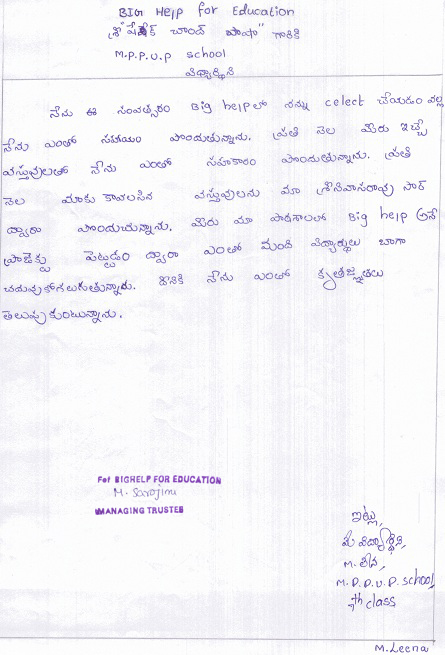 BIG Help for Education
శ్రీ షేక్ చాంద్ పాషా" గారికి
M.P.P.U.P school
విద్యార్థిని
నేను ఈ సంవత్సరం Big help లో నన్ను celect చేయడం వల్ల
నేను ఎంతో సహాయం పొందుతున్నాను. ప్రతి నెల మీరు ఇచ్చే
వస్తువులతో నేను ఎంతో సహకారం పొందుతున్నాను. ప్రతి
నెల మాకు కావలసిన వస్తువులను మా శ్రీనివాసరావు సార్
ద్వారా పొందుచున్నాను. మీరు మా పాఠశాలలో Big help అనే
ప్రాజెక్టు పెట్టడం ద్వారా ఎంతో మంది విద్యార్థులు బాగా
చదువుకోగలుగుతున్నారు. దీనికి నేను ఎంతో కృతజ్ఞతలు
తెలుపుకుంటున్నాను.
For BIGHELP FOR EDUCATION
M. Sarojini
MANAGING TRUSTEE
ఇట్లు,
మీ విద్యార్థిని,
M. లీన,
M.P.P.U.P. school,
7th class
M. Leena